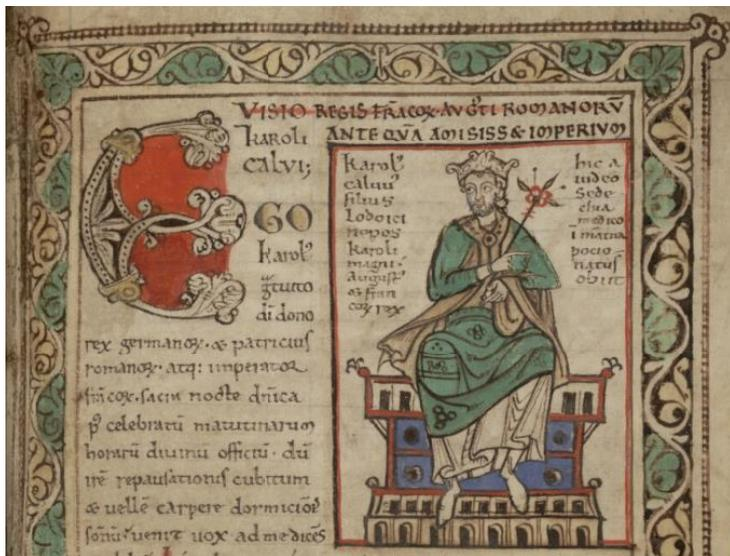 VISIO REGIS FRĀCOꝜ· AVGTI ROMANORŪ
KAROLI
CALVI;
ANTE QVA AMISISS& IMPERIVM
EGO
karolꝰ
gͣtuito
di dono
rex germanoꝝ· & patricius
romanoꝝ· atq: imperator
frācoꝝ· sacra nocte dnica
celebratū matutinarum
horarū diuinū officiū· dū
irē repausationis cubitum
& uellē carpere dormicioīs
sōnū· uenit uox ad me dicēs
karolꝰ
caluuꝰ
filius
Lodoici
nepos
karoli
magni·
augustꝰ
& fran
coꝝ rex
hic a
iudeo
Sede
chia
medico
pocio
natus
obiit